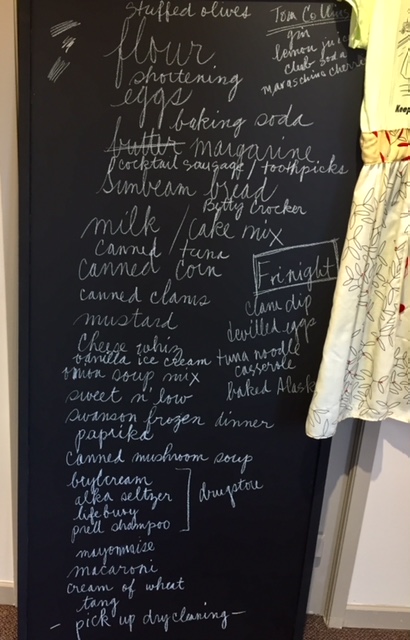 stuffed olives
Tom Collins
gin
lemon juice
club soda
maraschino cherries
flour
shortening
eggs
baking soda
butter margarine
cocktail sausage / toothpicks
Sunbeam bread
Betty Crocker
milk / cake mix
canned tuna
canned corn
canned clams
mustard
Cheese whiz
vanilla ice cream
onion soup mix
sweet n' low
swanson frozen dinner
paprika
canned mushroom soup
Fri night
clam dip
devilled eggs
tuna noodle
casserole
baked Alaska
brylcream
alka seltzer
lifebuoy
prell shampoo
drugstore
mayonnaise
macaroni
cream of wheat
tang
- pick up drycleaning -
Keep